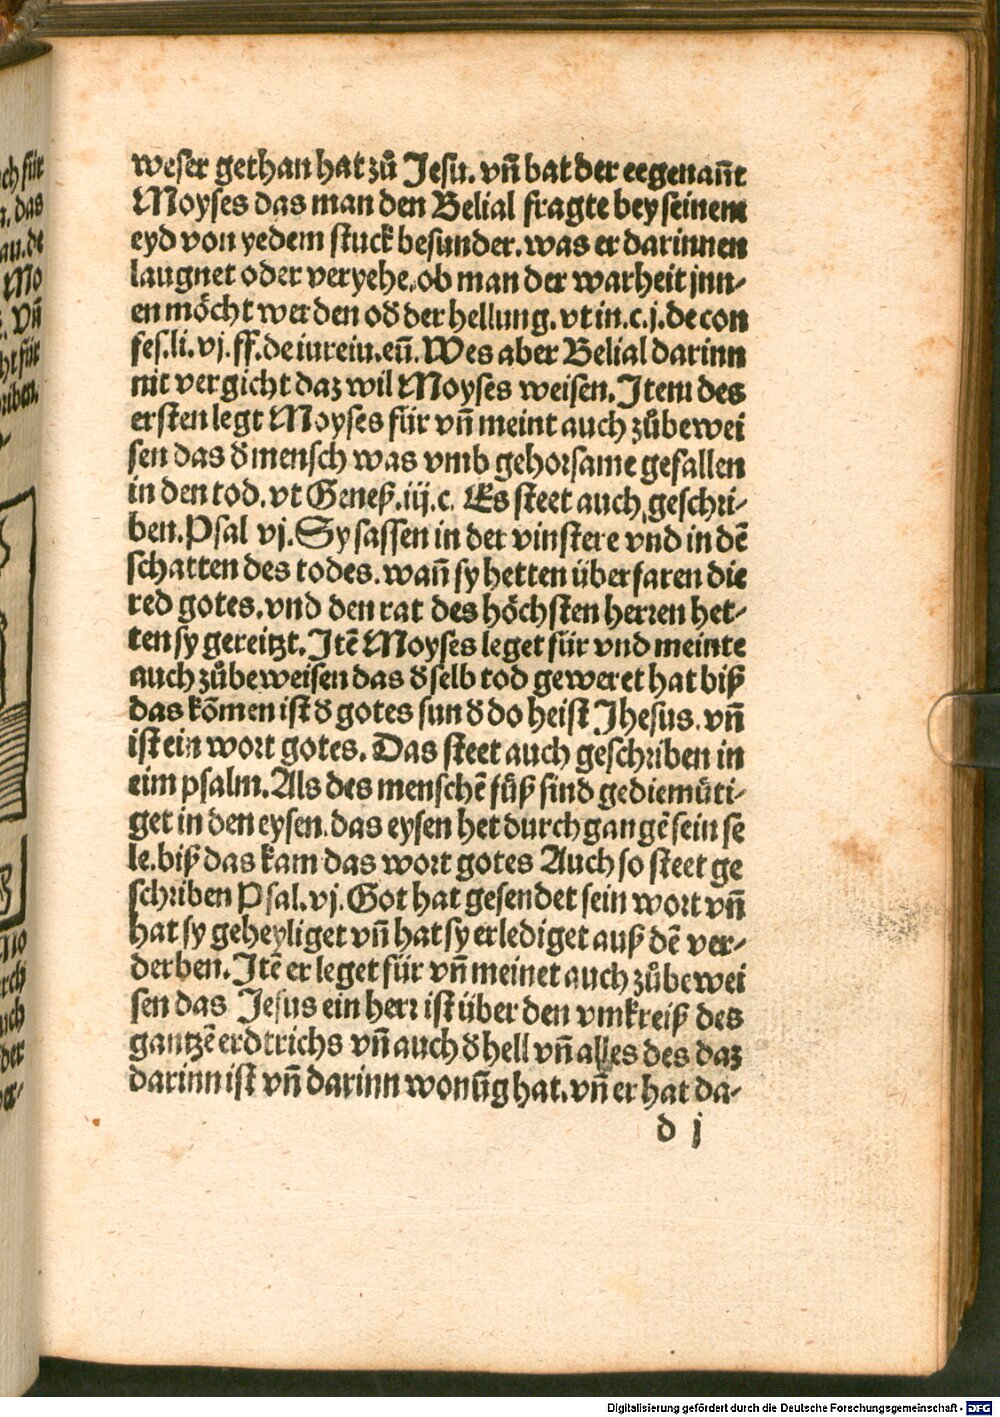 weser gethan hat zů Jesu. vñ bat der eegenañt
Moyses das man den Belial fragte bey seinem
eyd von yedem stuck besunder. was er darinnen
laugnet oder veryehe. ob man der warheit jnn-
en möcht werden oð der hellung. vt in. c. j. de con
fes. li. vj. ff. de iureiu. eū. Wes aber Belial darinn
nit vergicht daz wil Moyses weisen. Item des
ersten legt Moyses für vñ meint auch zůbewei
sen das ð mensch was vmb gehorsame gefallen
in den tod. vt Geneß. iij. c. Es steet auch geschri-
ben. Psal vj. Sy sassen in der vinstere vnd in dē
schatten des todes. wañ sy hetten überfaren die
red gotes. vnd den rat des höchsten herren het-
ten sy gereitzt. Itē Moyses leget für vnd meinte
auch zůbeweisen das ð selb tod geweret hat biß
das kōmen ist ð gotes sun ð do heist Jhesus. vñ
ist ein wort gotes. Das steet auch geschriben in
eim psalm. Als des menschē fůß sind gediemüti-
get in den eysen. das eysen het durchgangē sein se
le. biß das kam das wort gotes Auch so steet ge
schriben Psal. vj. Got hat gesendet sein wort vñ
hat sy geheyliget vñ hat sy erlediget auß dē ver-
derben. Itē er leget für vñ meinet auch zůbewei
sen das Jesus ein herr ist über den vmkreiß des
gantzē erdtrichs vñ auch ð hell vñ alles des daz
darinn ist vñ darinn wonūg hat. vñ er hat da-
d j
ch für
das
au. de
Mo
Vñ
ht für
riben.
Digitalisierung gefördert durch die Deutsche Forschungsgemeinschaft - DFG